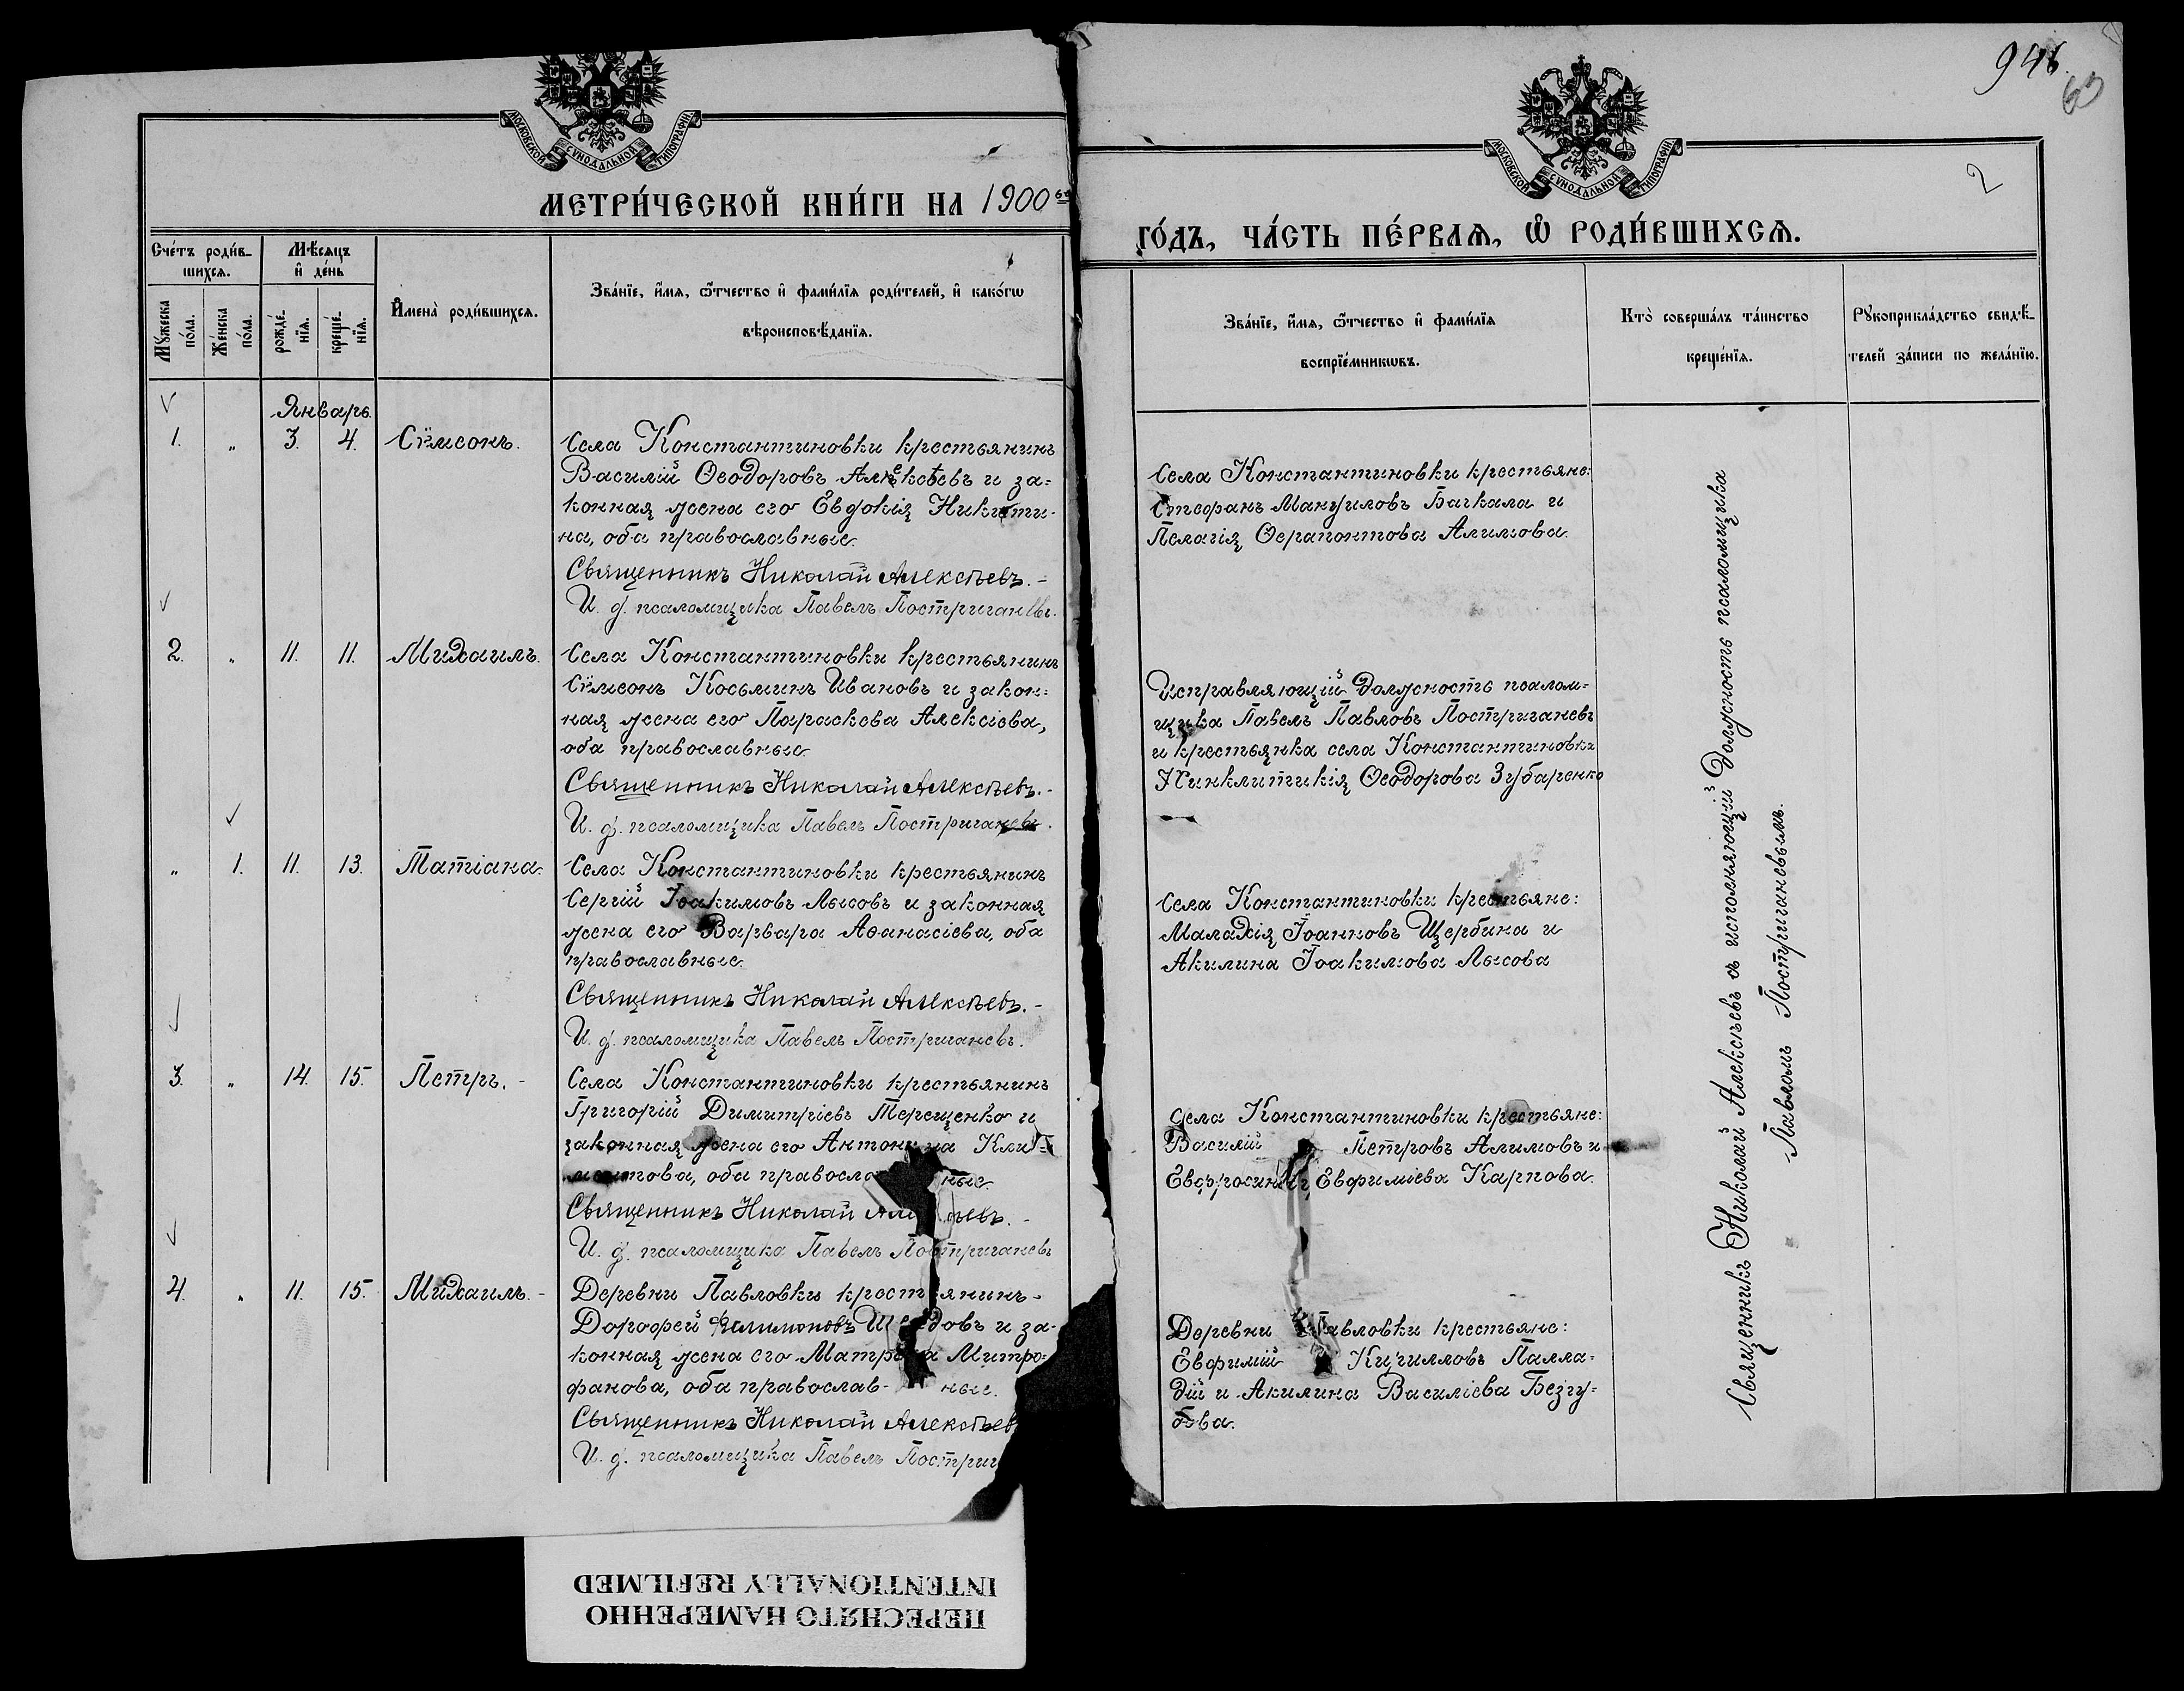 946.
63
2
МОСКОВСКОЙ СѴНОДАЛЬНОЙ ТИПОГРАФІИ
МОСКОВСКОЙ СѴНОДАЛЬНОЙ ТИПОГРАФІИ
МЕТРИ́ЧЕСКОЙ КНИ́ГИ НА 1900
ГО́ДЪ, ЧА́СТЬ ПЕ́РВАѦ, Ѽ РОДИ́ВШИХСѦ.
Сче́тъ роди́в-
шихсѧ.
Мѣ́сѧцъ
и҆ де́нь
Мꙋ́жеска
по́ла.
Же́нска
по́ла.
рожде́-
нїѧ.
креще́-
нїѧ.
И҆мена̀ роди́вшихсѧ.
Зва́нїе, и҆́мѧ, ѻ҆́тчество и҆ фами́лїѧ роди́телей, и҆ како́гѡ
вѣроисповѣ́данїѧ.
Зва́нїе, и҆́мѧ, ѻ҆́тчество и҆ фами́лїѧ
воспрїе́мникѡвъ.
Кто̀ соверша́лъ та́инство
креще́нїѧ.
Рꙋкоприкла́дство свидѣ́-
телей за́писи по жела́нїю.
Январь.
1. „ 3. 4. Сѵмеонъ.
Села Константиновки крестьянинъ
Василій Ѳеодоровъ Алексѣевъ и за=
конная жена его Евдокія Никити-
на, оба православные.
Священникъ Николай Алексѣевъ.-
И. д. псаломщика Павелъ Постриганевъ.
Села Константиновки крестьяне:
Стефанъ Мануиловъ Бачкала и
Пелагія Ѳерапонтова Алимова.
2. „ 11. 11. Михаилъ.
Села Константиновки крестьянинъ
Сѵмеонъ Косьминъ Ивановъ и закон=
ная жена его Параскева Алексіева,
оба православные
Священникъ Николай Алексѣевъ.-
И. д. псаломщика Павелъ Постриганевъ.
Исправляющій должность псалом=
щика Павелъ Павловъ Постриганевъ
и крестьянка села Константиновки
Ѳеодорова Зубаренко
„ 1. 11. 13. Татіана.
Села Константиновки крестьянинъ
Сергій Іоакимовъ Лысовъ и законная
жена его Варвара Аѳанасіева, оба
православные.
Священникъ Николай Алексѣевъ.-
И. д. псаломщика Павелъ Постриганевъ.
Села Константиновки крестьяне:
Малахія Іоанновъ Щербина и
Акилина Іоакимова Лысова
3. „ 14. 15. Петръ.-
Села Константиновки крестьянинъ
Григорій Димитріевъ Терещенко и
законная жена его Антонина
оба православные.
Священникъ Николай
И. д. псаломщика Павелъ Постриганевъ
Села Константиновки крестьяне:
Василій Петровъ Алимовъ и
Евфросинія Евфиміева Карпова.
4. „ 11. 15. Михаилъ.-
Деревни Павловки крестьянинъ-
Дорофей Филимоновъ и за-
конная жена его Митро=
фанова, оба православ- ные.
Священникъ Николай Алексѣев
И. д. псаломщика Павелъ Постриг
Деревни Павловки крестьяне:
Евфимій Кирилловъ Палла=
дій и Акилина Василіева Безгу=
бова.
Священникъ Николай Алексѣевъ съ исполняющій должность псаломщика
Павломъ Постриганевымъ.
ПЕРЕСНЯТО НАМЕРЕННО
INTENTIONALLY REFILMED